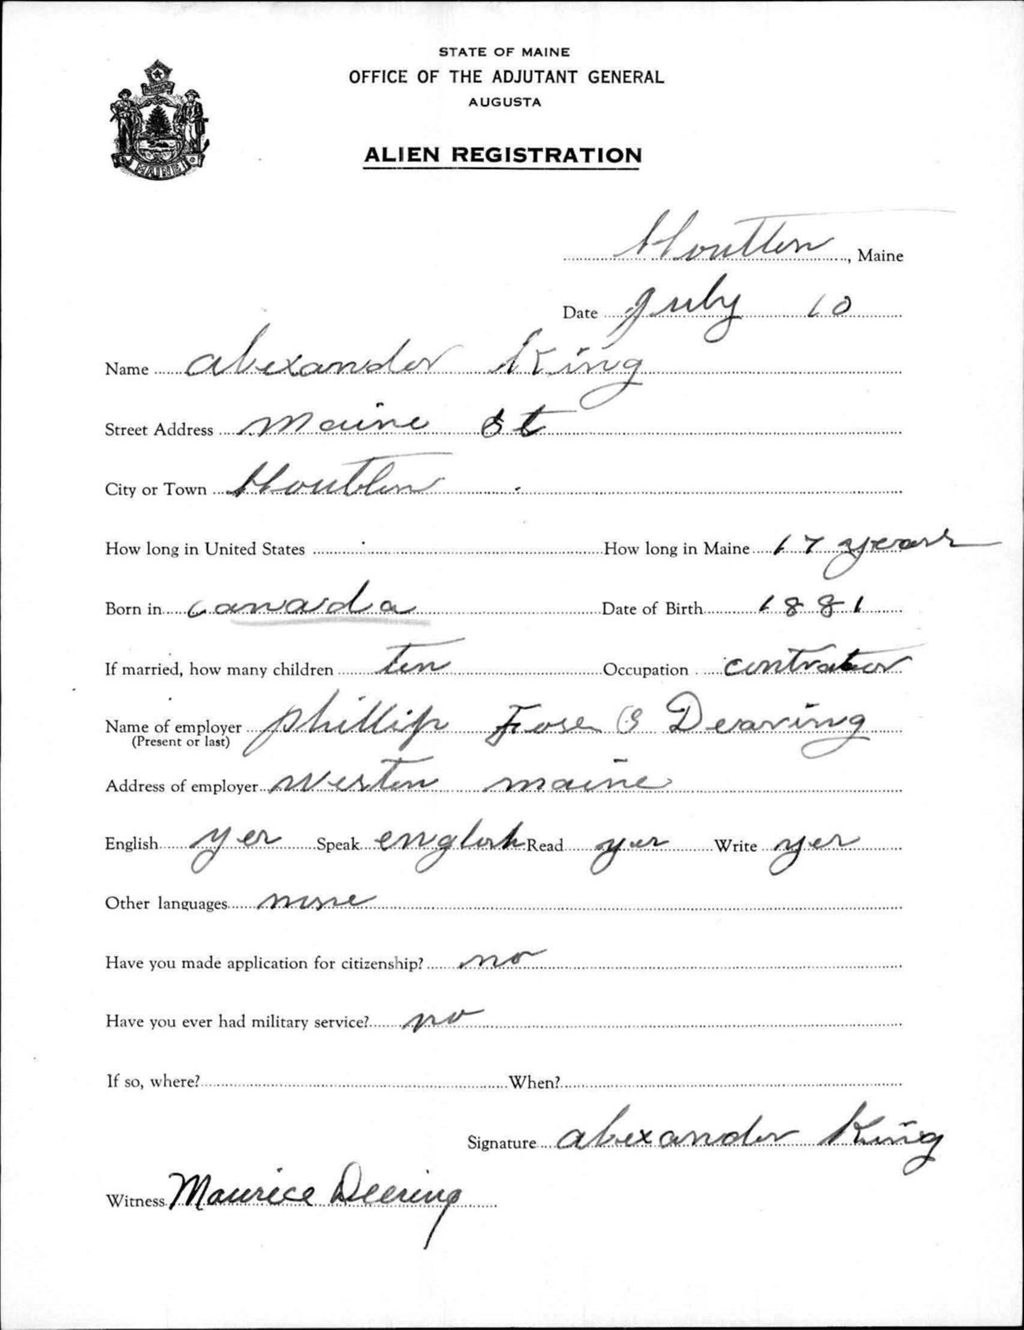 STATE OF MAINE
OFFICE OF THE ADJUTANT GENERAL
AUGUSTA
ALIEN REGISTRATION
MAINE
Houlton, Maine
Date July 10
Name Alexander King
Street Address Maine St
City or Town Houlton
How long in United States How long in Maine 17 years
Born in Canada Date of Birth 1881
If married, how many children ten Occupation contrator
Name of employer Phillip & Dearing
(Present or last)
Address of employer Weston Maine
English yes Speak english Read yes Write yes
Other languages none
Have you made application for citizenship? no
Have you ever had military service? no
If so, where? When?
Signature Alexander King
Witness Maurice Deering